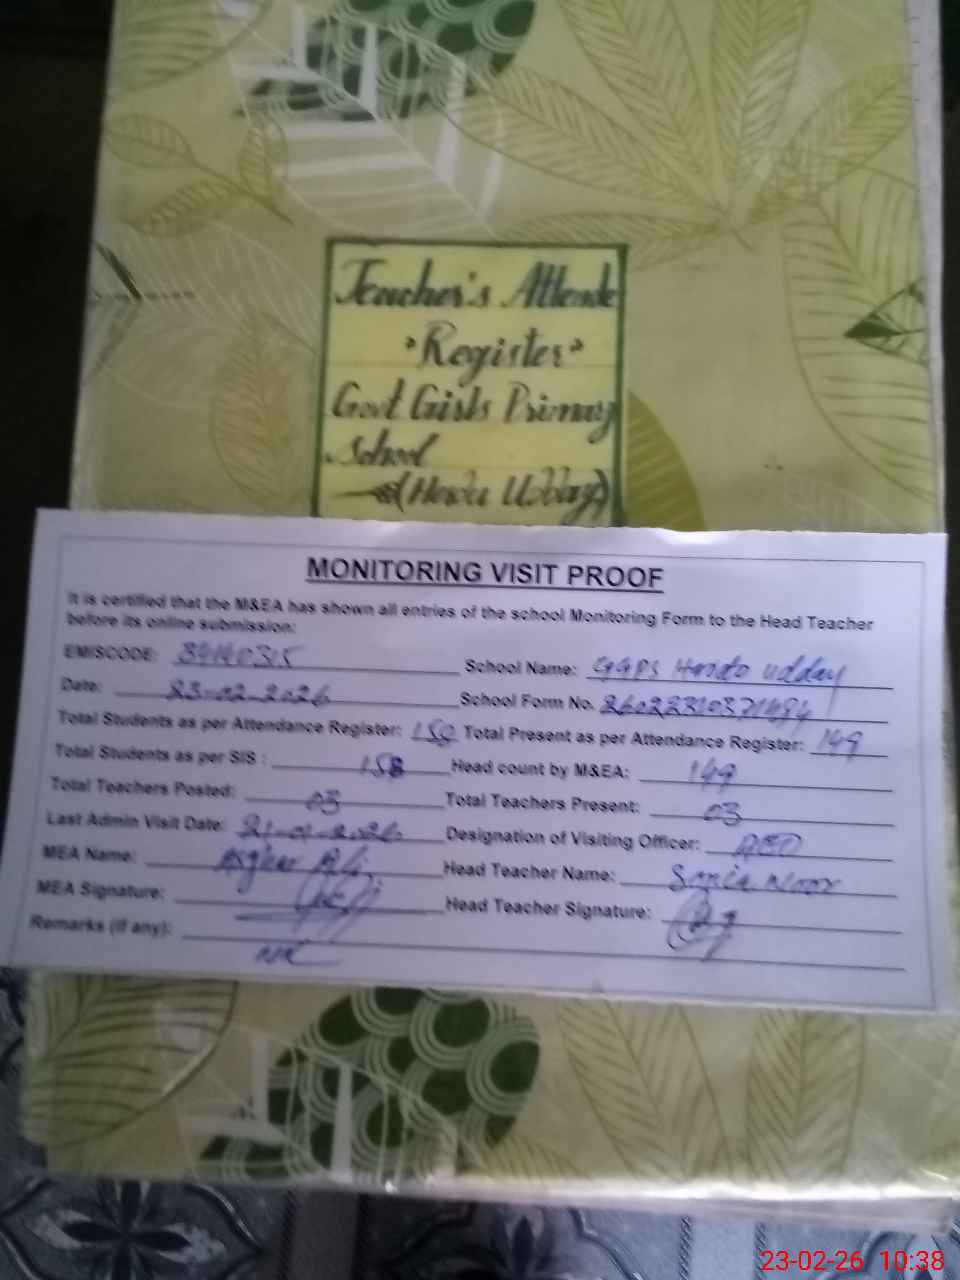 Teacher's Attende
"Register"
Govt Girls Primary
School
(Handu Udday)
MONITORING VISIT PROOF
It is certified that the M&EA has shown all entries of the school Monitoring Form to the Head Teacher
before its online submission:
EMISCODE: 39140315 School Name: GGPS Hando udday
Date: 23-02-2026 School Form No.
Total Students as per Attendance Register: 158 Total Present as per Attendance Register: 149
Total Students as per SIS : 158 Head count by M&EA: 149
Total Teachers Posted: 03 Total Teachers Present: 03
Last Admin Visit Date: 21-01-2026 Designation of Visiting Officer: AEO
MEA Name: Asghar Ali Head Teacher Name: Sonia Noor
MEA Signature: Head Teacher Signature:
Remarks (if any): Nil
23-02-26 10:38